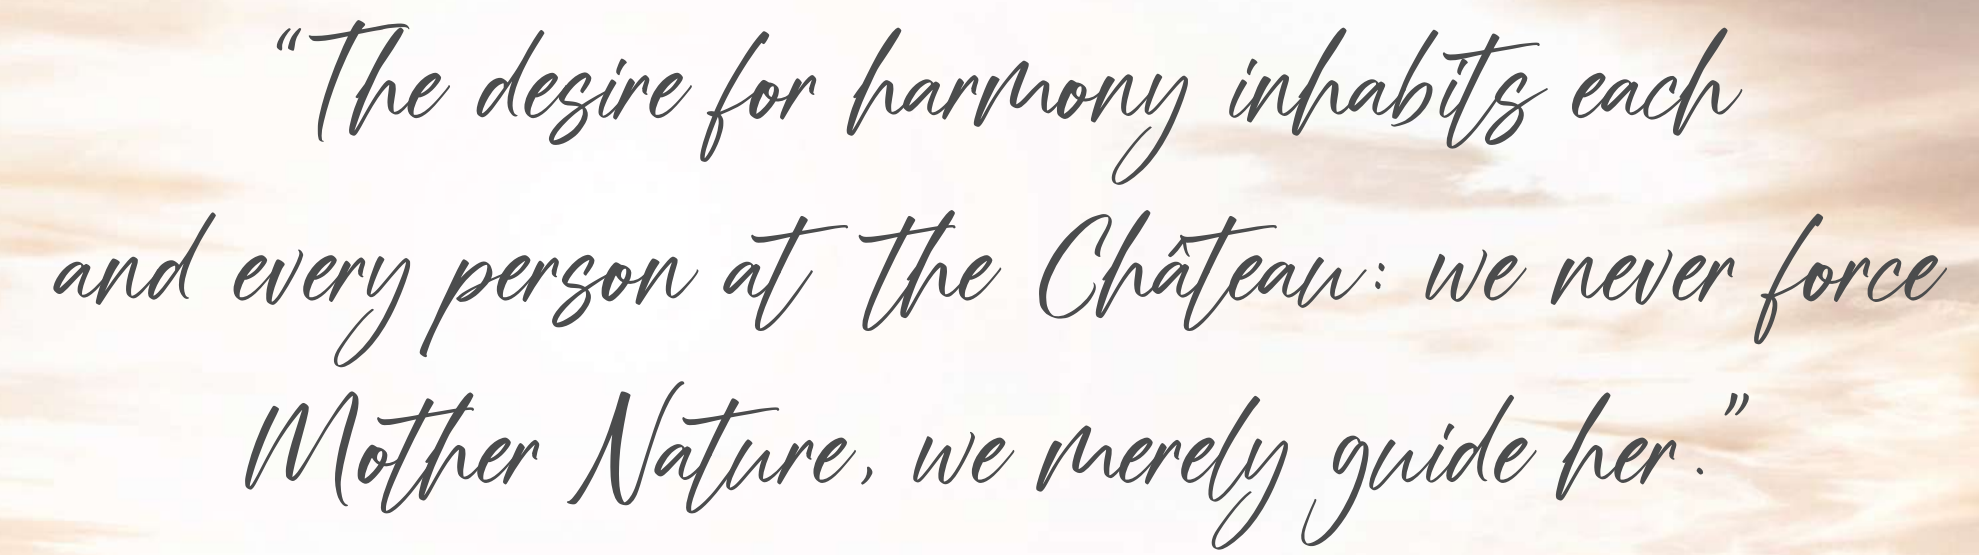 “The desire for harmony inhabits each
and every person at the Château: we never force
Mother Nature, we merely guide her.”